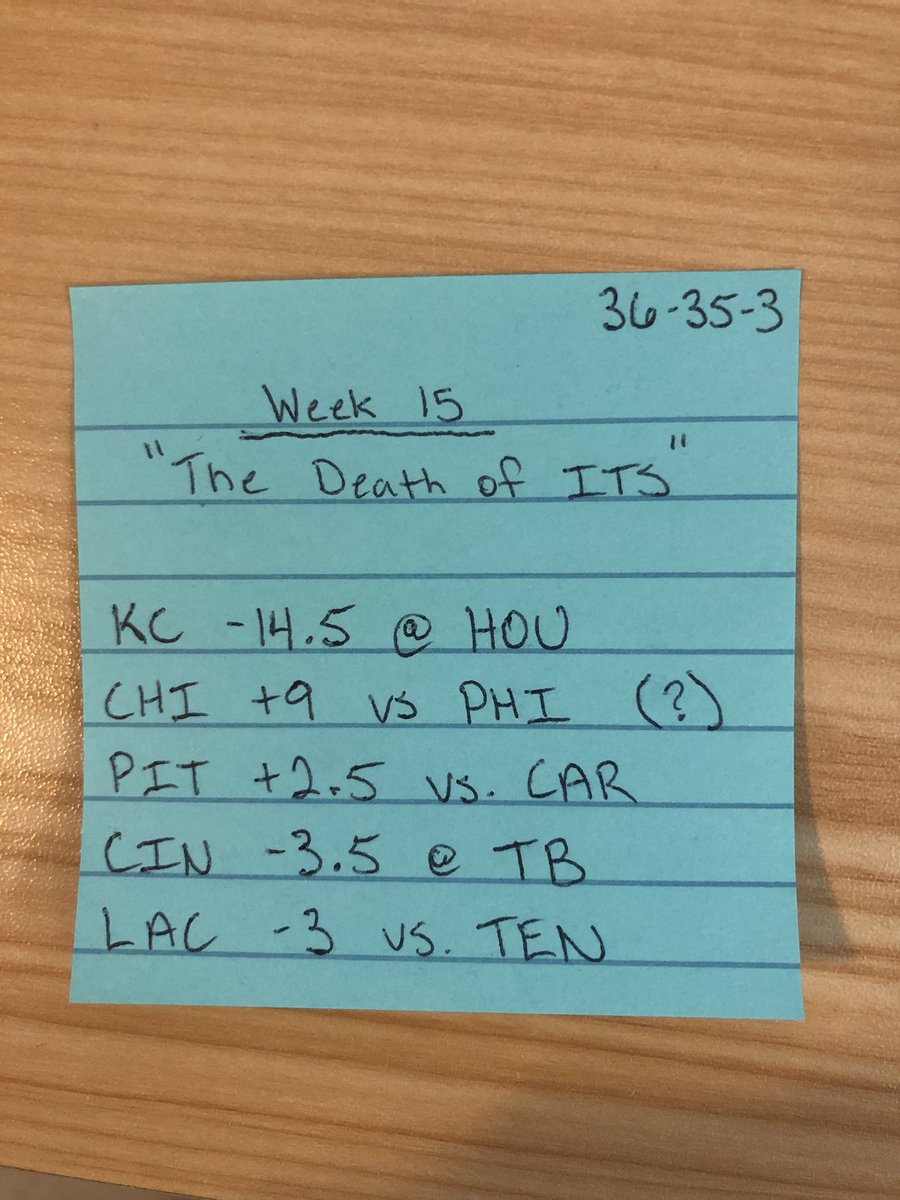 36-35-3
Week 15
"The Death of ITS"
KC -14.5 @ HOU
CHI +9 vs PHI (?)
PIT +2.5 vs. CAR
CIN -3.5 @ TB
LAC -3 vs. TEN